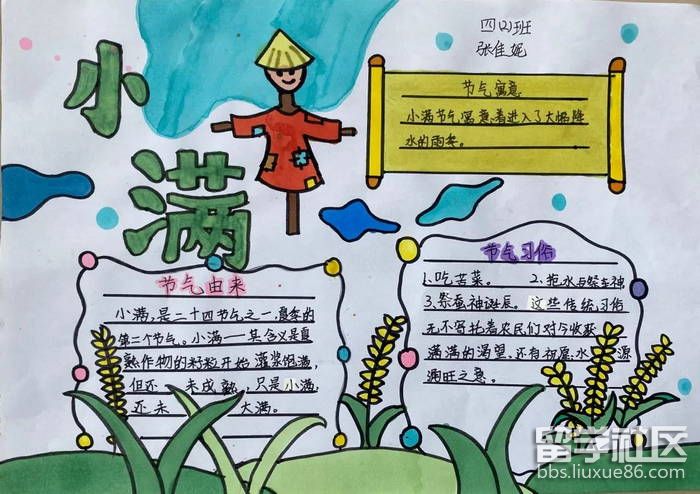 四(2)班
张佳妮
小满
节气寓意
小满节气,寓意着进入了大幅降
水的雨季。
节气由来
小满,是二十四节气之一,夏季的
第二个节气。小满——其含义是夏
熟作物的籽粒开始灌浆饱满,
但还 未成熟,只是小满,
还未 大满。
节气习俗
1.吃苦菜。 2、抢水与祭车神
3.祭蚕神诞辰。这些传统习俗
无不寄托着农民们对今收获
满满的渴望,还有祝愿水 源
涧旺之意。
留学社区
bbs.liuxue86.com